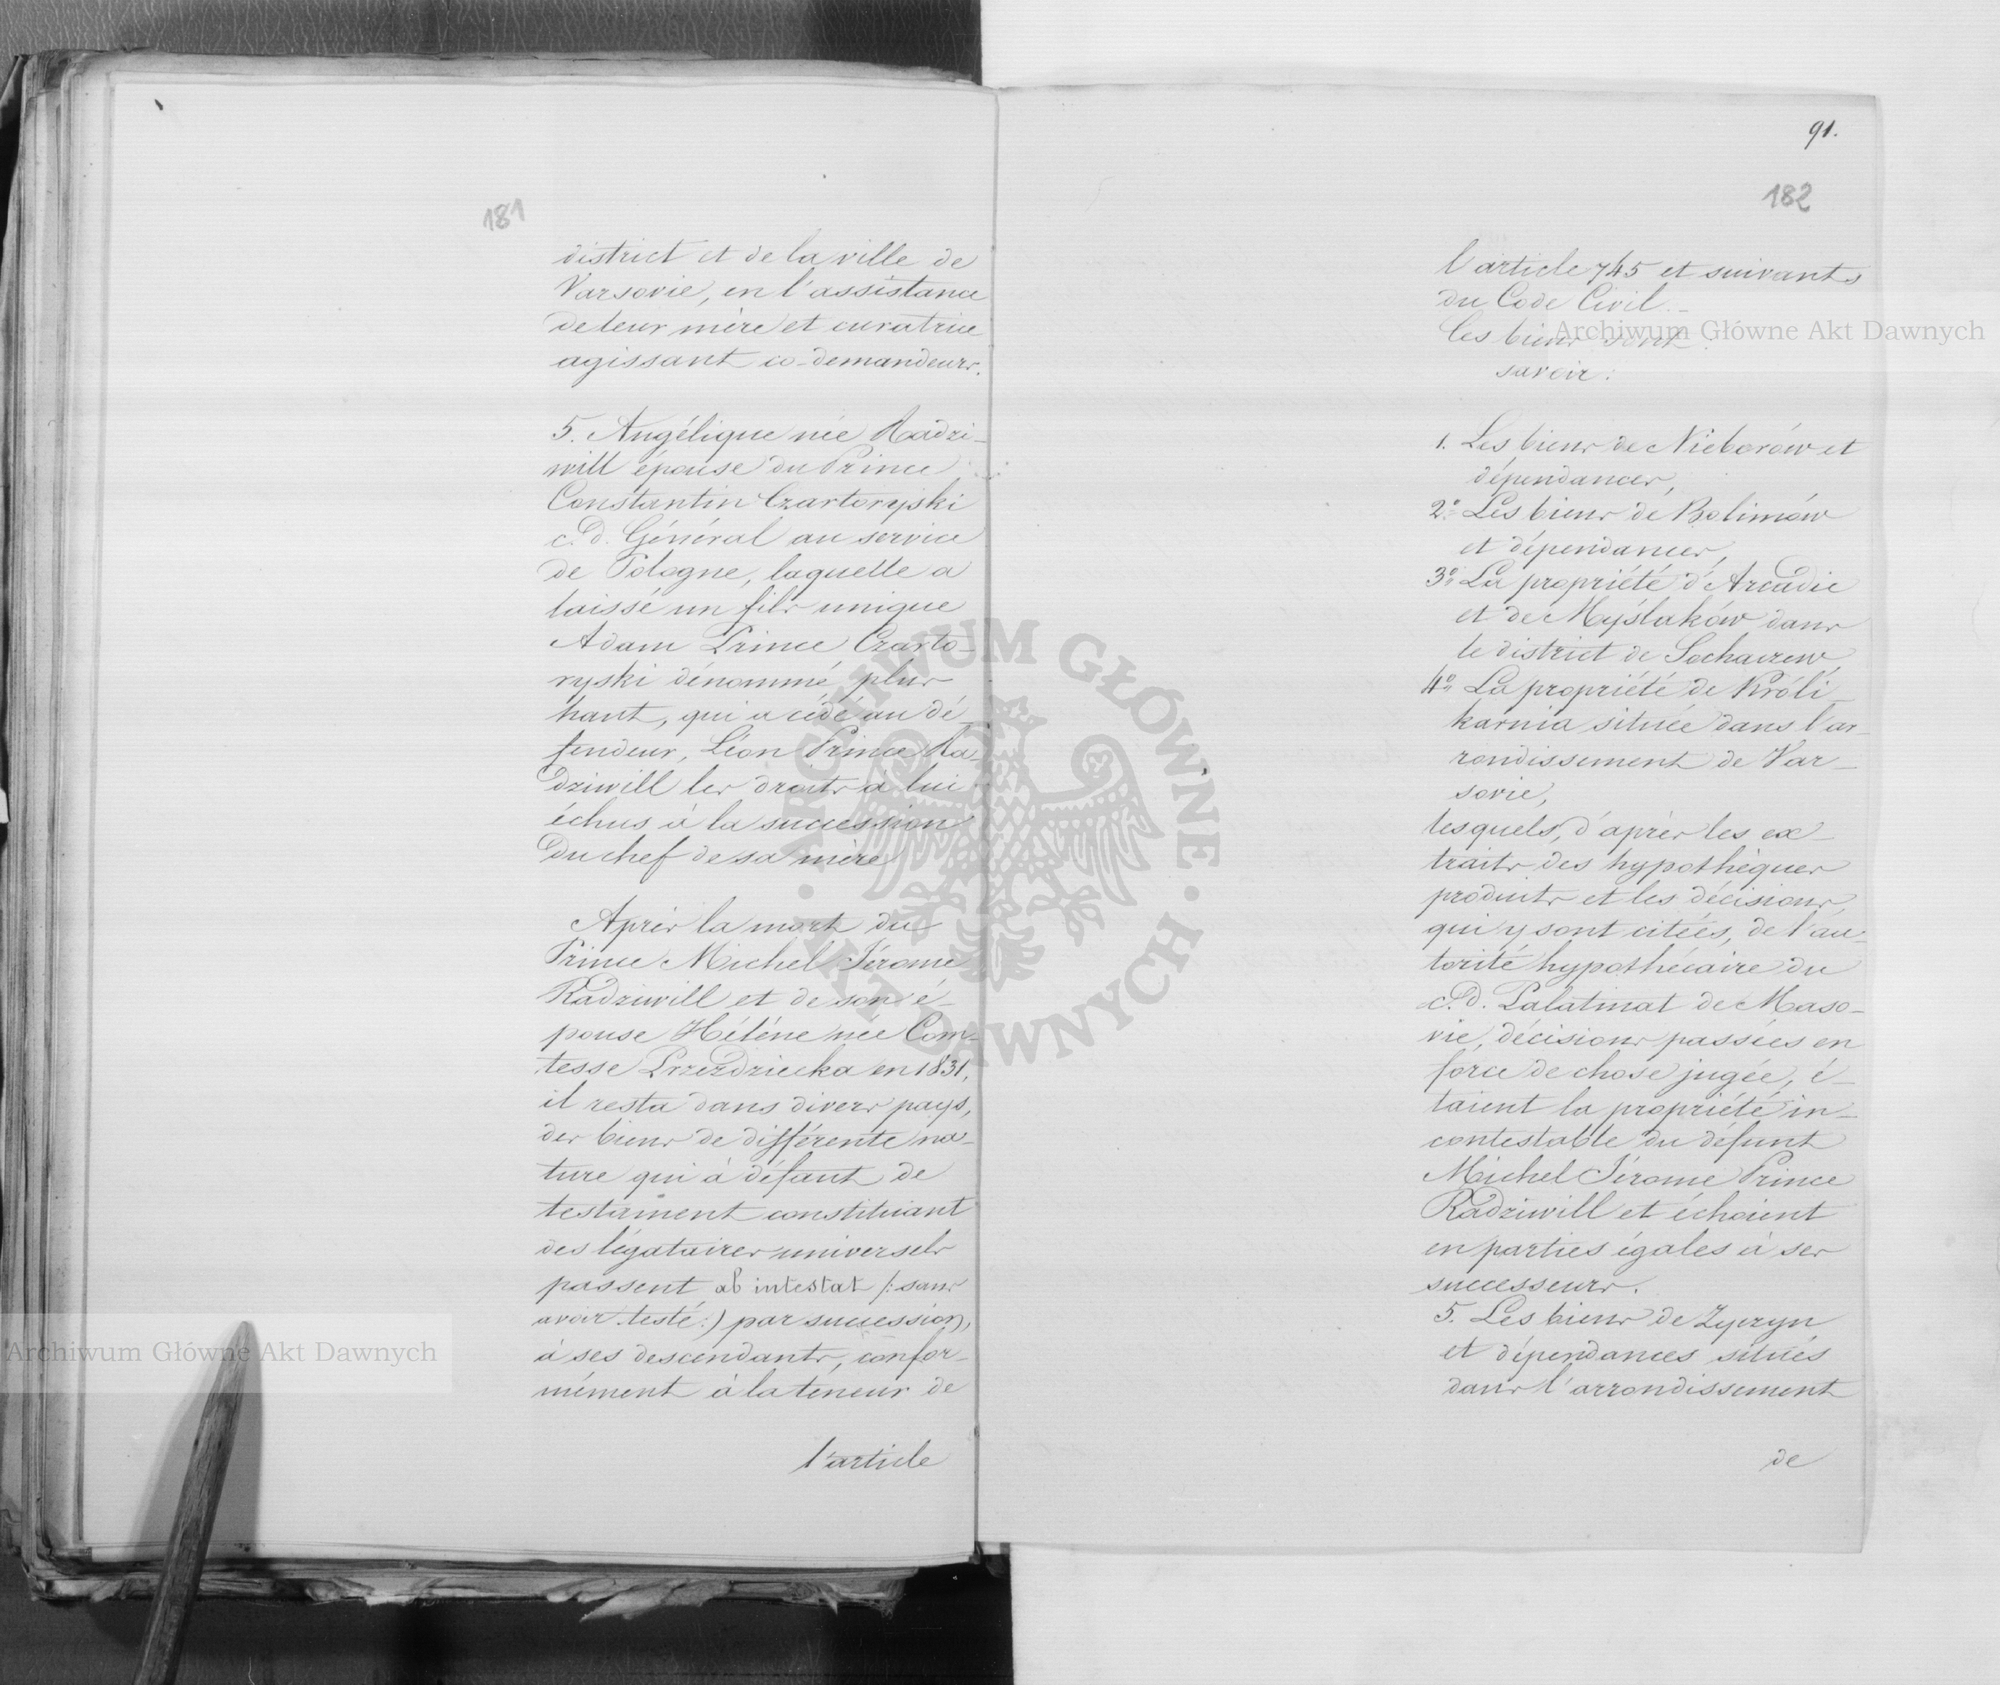 181
district et de la ville de
Varsovie, en l'assistance
de leur mère et curatrice
agissant co-demandeurs.
5. Angélique née Radzi-
will épouse du Prince
Constantin Czartoryski
c.d. Général au service
de Pologne, laquelle a
laissé un fils unique
Adam Prince Czarto-
ryski dénommé plus
haut, qui a cédé au dé-
fendeur, Léon Prince Ra-
dziwill les droits à lui
échus à la succession
du chef de sa mère
Après la mort du
Prince Michel Jérome
Radziwill et de son é-
pouse Hélène née Com-
tesse Przezdziecka en 1831,
il resta dans divers pays,
des biens de différente na-
ture qui à défaut de
testament constituant
des légataires universels
passent ab intestat /: sans
avoir testé :) par succession,
à ses descendants, confor-
mément à la teneur de
l'article
91.
182
l'article 745 et suivants
du Code Civil.-
Ces biens sont:
savoir:
1. Les biens de Nieborów et
dépendances,
2° Les biens de Bolimów
et dépendances,
3° La propriété d'Arcadie
et de Mysłaków dans
le district de Sochaczew,
4° La propriété de Króli-
karnia située dans l'ar-
rondissement de Var-
sovie,
lesquels, d'après les ex-
traits des hypothèques
produits et les décisions,
qui y sont citées, de l'au-
torité hypothécaire du
c.d. Palatinat de Maso-
vie, décisions passées en
force de chose jugée, é-
taient la propriété in-
contestable du défunt
Michel Jérome Prince
Radziwill et échoient
en parties égales à ses
successeurs.
5. Les biens de Zyrzyn
et dépendances situés
dans l'arrondissement
de
Archiwum Główne Akt Dawnych
Archiwum Główne Akt Dawnych
ARCHIWUM GŁÓWNE · AKT DAWNYCH ·